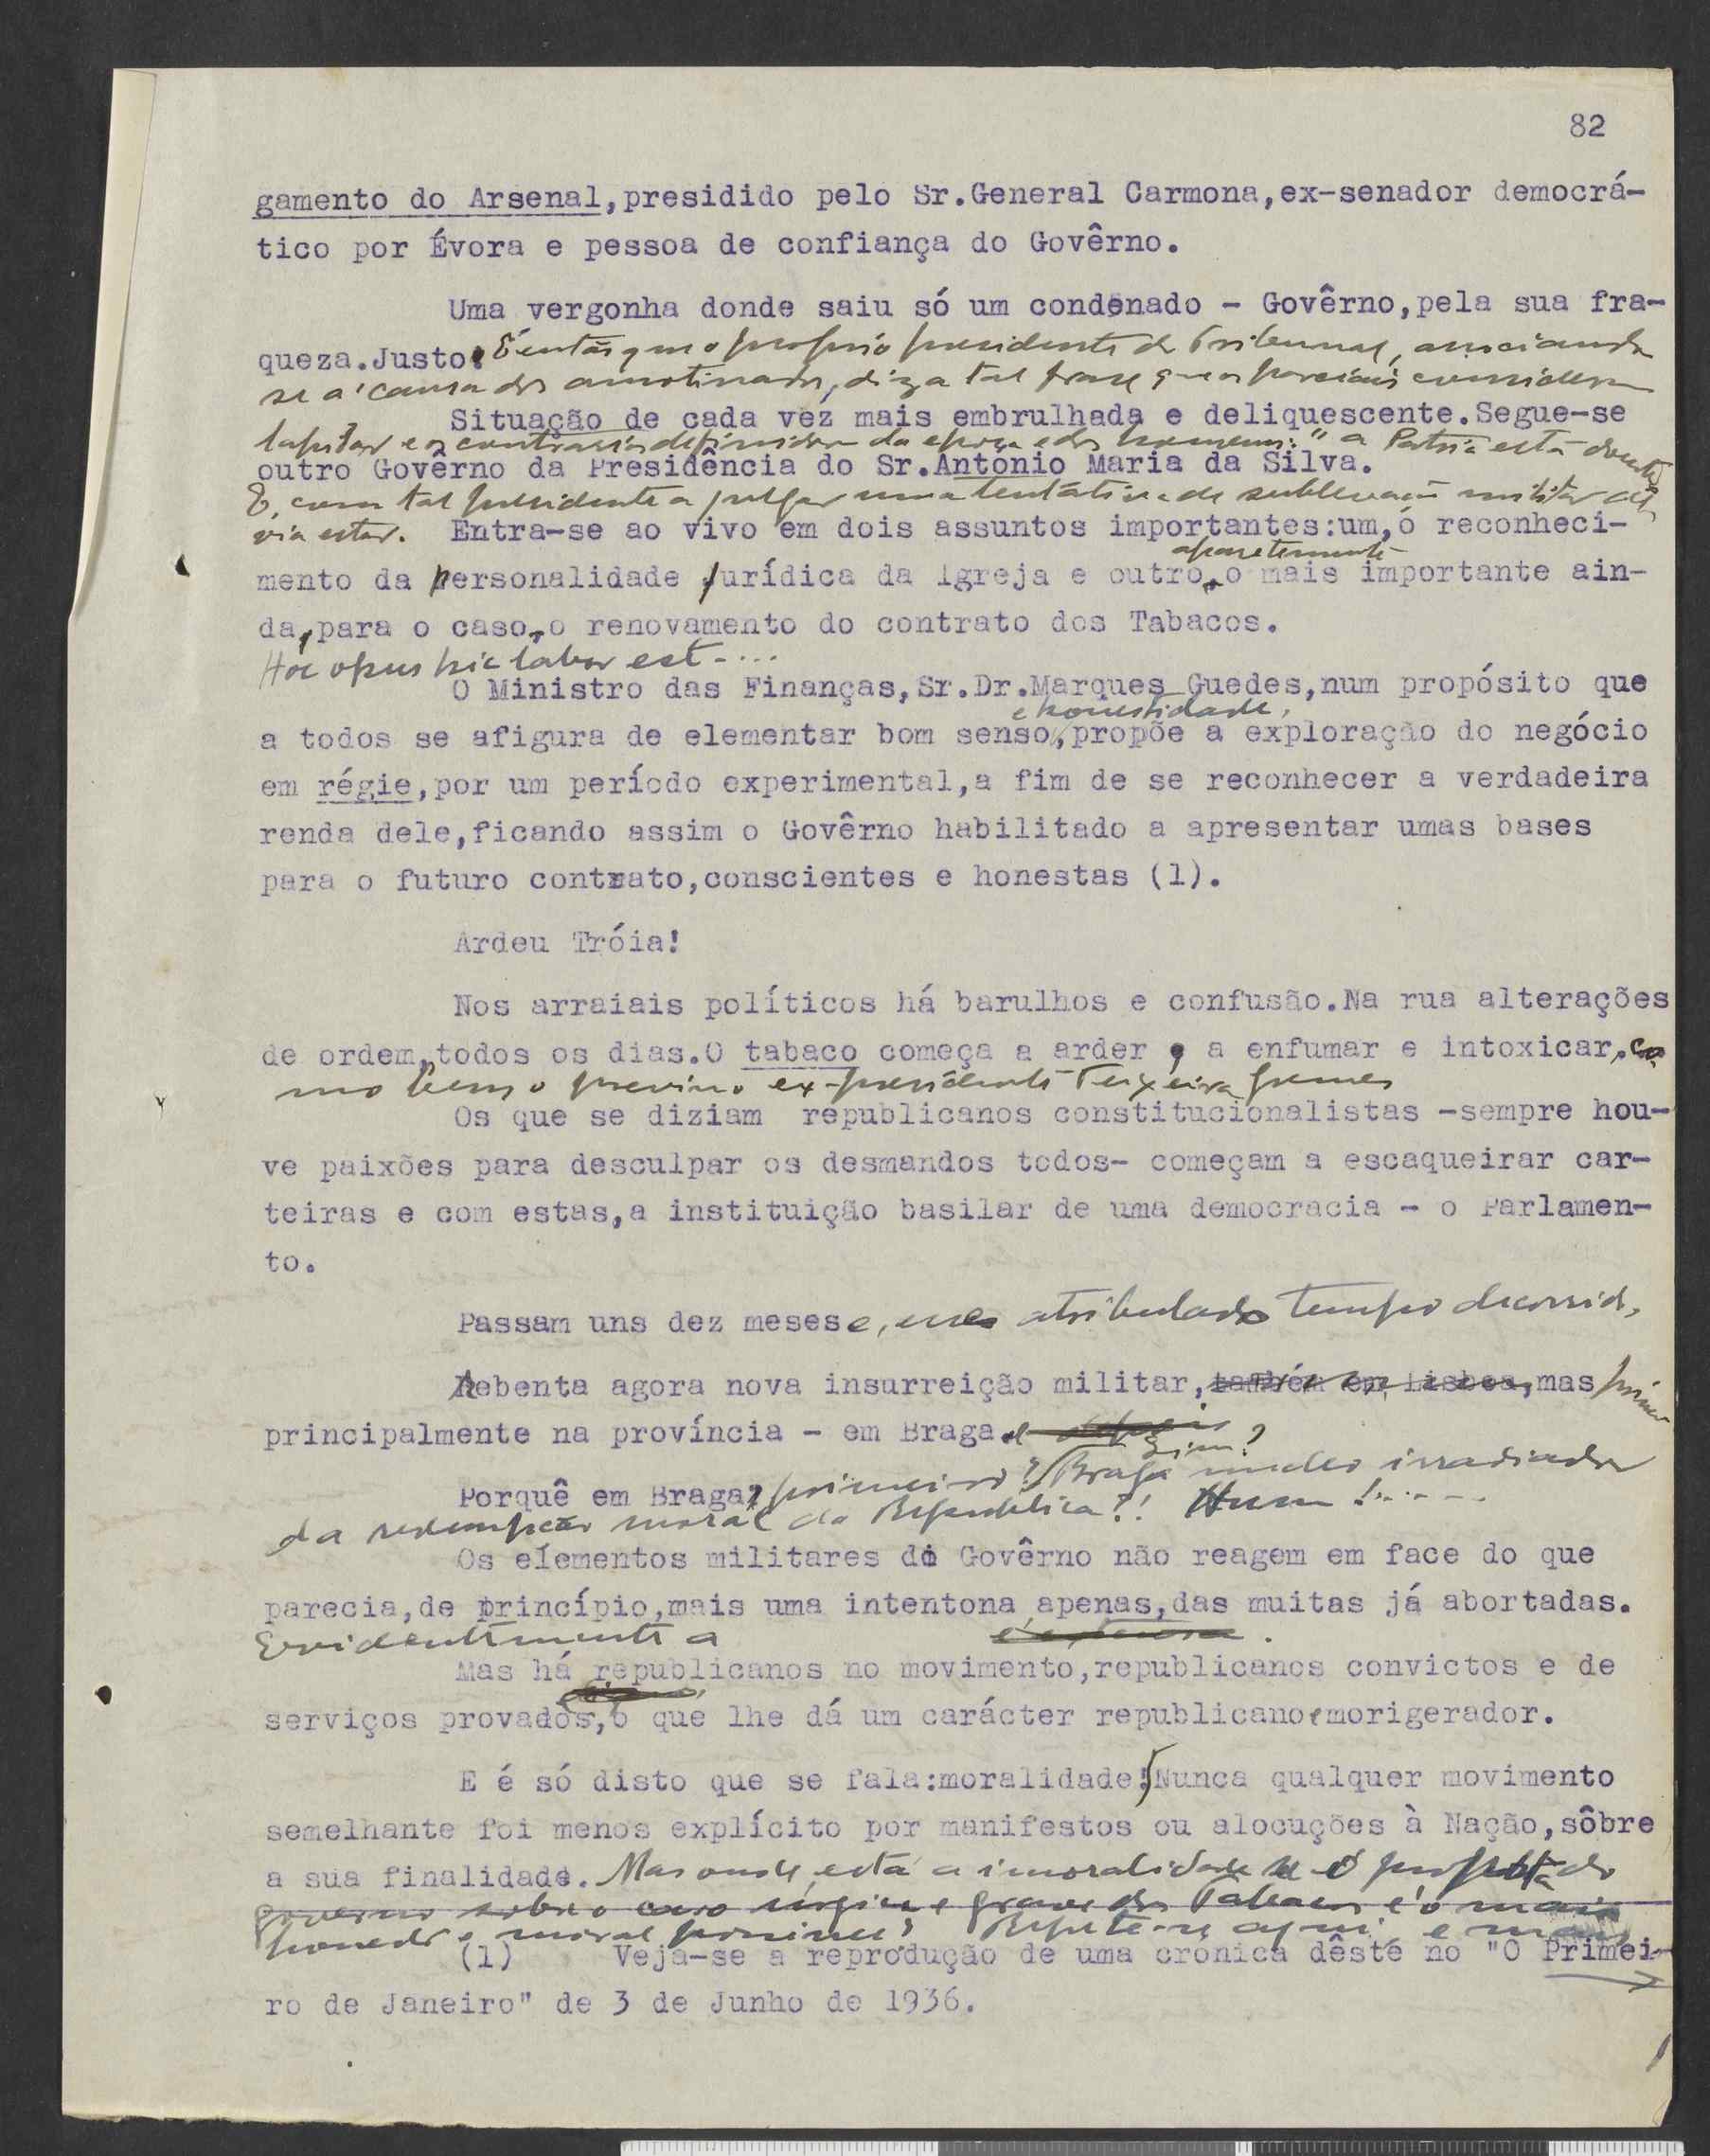 82
gamento do Arsenal,presidido pelo Sr.General Carmona,ex-senador democrá-
tico por Évora e pessoa de confiança do Govêrno.
Uma vergonha donde saiu só um condenado - Govêrno,pela sua fra-
queza.Justo! E então que o proprio presidente do Tribunal, associando
se á causa dos amotinados, diz a tal frase que os parciais consideram
Situação de cada vez mais embrulhada e deliquescente.Segue-se
lapidar e os contrarios definidora da epoca e dos homens: "a Patria está doente
outro Govêrno da Presidência do Sr.António Maria da Silva.
E, com tal presidente a julgar uma tentativa de sublevação militar de-
via estar. Entra-se ao vivo em dois assuntos importantes:um,o reconheci-
aparetemente
mento da personalidade jurídica da Igreja e outro,o mais importante ain-
da,para o caso,o renovamento do contrato dos Tabacos.
Hoc opus hic labor est-...
O Ministro das Finanças,Sr.Dr.Marques Guedes,num propósito que
e honestidade,
a todos se afigura de elementar bom senso,propõe a exploração do negócio
em régie,por um período experimental,a fim de se reconhecer a verdadeira
renda dele,ficando assim o Govêrno habilitado a apresentar umas bases
para o futuro contrato,conscientes e honestas (1).
Ardeu Tróia!
Nos arraiais políticos há barulhos e confusão.Na rua alterações
de ordem,todos os dias.O tabaco começa a arder, a enfumar e intoxicar, co
mo bem o previu o ex-presidente Teixeira Gomes
Os que se diziam republicanos constitucionalistas -sempre hou-
ve paixões para desculpar os desmandos todos- começam a escaqueirar car-
teiras e com estas,a instituição basilar de uma democracia - o Parlamen-
to.
Passam uns dez meses e, esse atribulado tempo decorrido,
Rebenta agora nova insurreição militar,também em Lisboa,mas
principalmente na província - em Braga.
Sim?
Porquê em Braga, primeiro? Braga nucleo irradiador
da redempção moral da Republica?! Hum!.....
Os elementos militares do Govêrno não reagem em face do que
parecia,de princípio,mais uma intentona apenas,das muitas já abortadas.
Evidentemente a
Mas há republicanos no movimento,republicanos convictos e de
serviços provados,o que lhe dá um carácter republicano e morigerador.
E é só disto que se fala:moralidade! Nunca qualquer movimento
semelhante foi menos explícito por manifestos ou alocuções à Nação,sôbre
a sua finalidade. Mas onde está a imoralidade se a proposta do
governo sobre o caso e grave dos Tabacos é o mais
honesto e moral possivel? Repete-se aqui e mais
(1) Veja-se a reprodução de uma cronica dêste no "O Primei-
ro de Janeiro" de 3 de Junho de 1936.